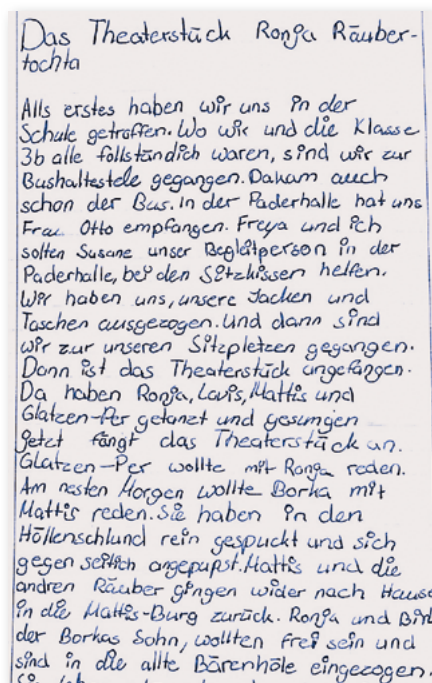 Das Theaterstück Ronja Räuber-
tochta
Alls erstes haben wir uns in der
Schule getroffen. Wo wir und die Klasse
3b alle follständich waren, sind wir zur
Bushaltestele gegangen. Da kam auch
schon der Bus. in der Paderhalle hat uns
Frau Otto empfangen. Freya und ich
solten Susane unser Begleitperson in der
Paderhalle, bei den Sitzkissen helfen.
Wir haben uns, unsere Jacken und
Taschen ausgezogen. Und dann sind
wir zur unseren Sitzpletzen gegangen.
Dann ist das Theaterstück angefangen.
Da haben Ronja, Lovis, Mattis und
Glatzen-Per getanzt und gesungen
jetzt fängt das Theaterstück an.
Glatzen-Per wollte mit Ronja reden.
Am nesten Morgen wollte Borka mit
Mattis reden. Sie haben in den
Höllenschlund rein gespuckt und sich
gegen seitlich angepupst. Mattis und die
andren Räuber gingen wider nach Hause
in die Mattis-Burg zurück. Ronja und
der Borkas Sohn, wollten frei sein und
sind in die allte Bärenhöle eingezogen.